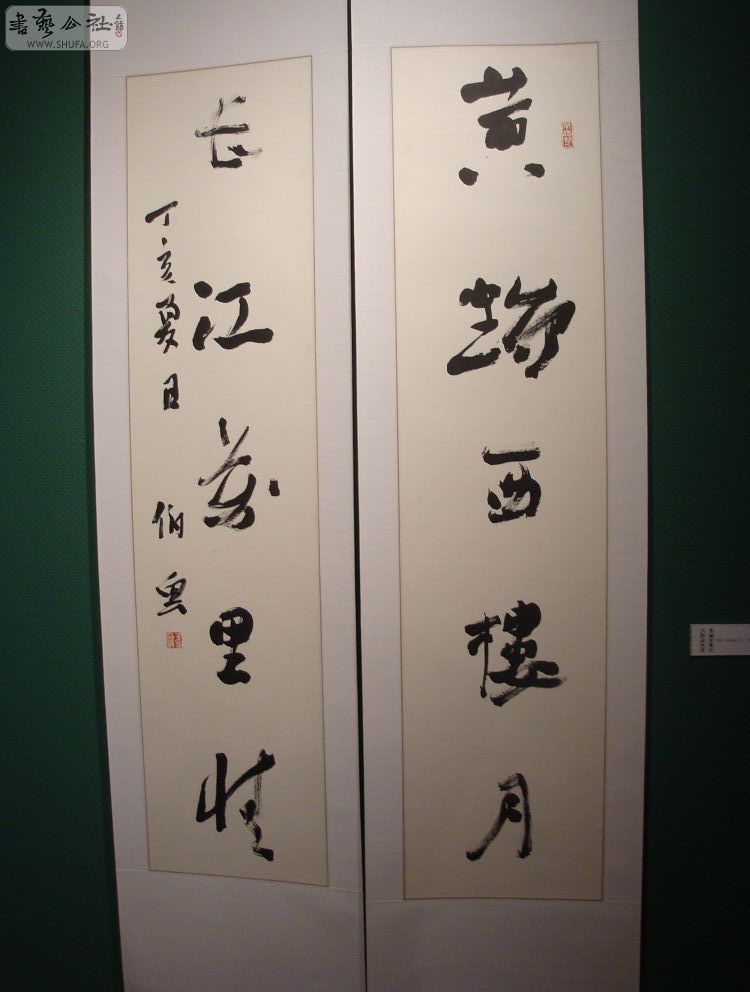 書藝公社
WWW.SHUFA.ORG
黄鶴西樓月
長江萬里情
丁亥夏月
伯